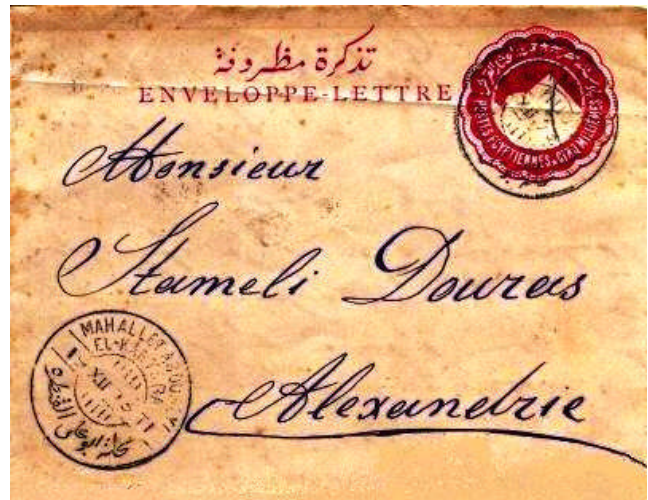 تذكرة مظروفة
ENVELOPPE-LETTRE
POSTES EGYPTIENNES CINQ MILLIEMES
Monsieur
Stameli Douras
Alexandrie
MAHALLET
XII